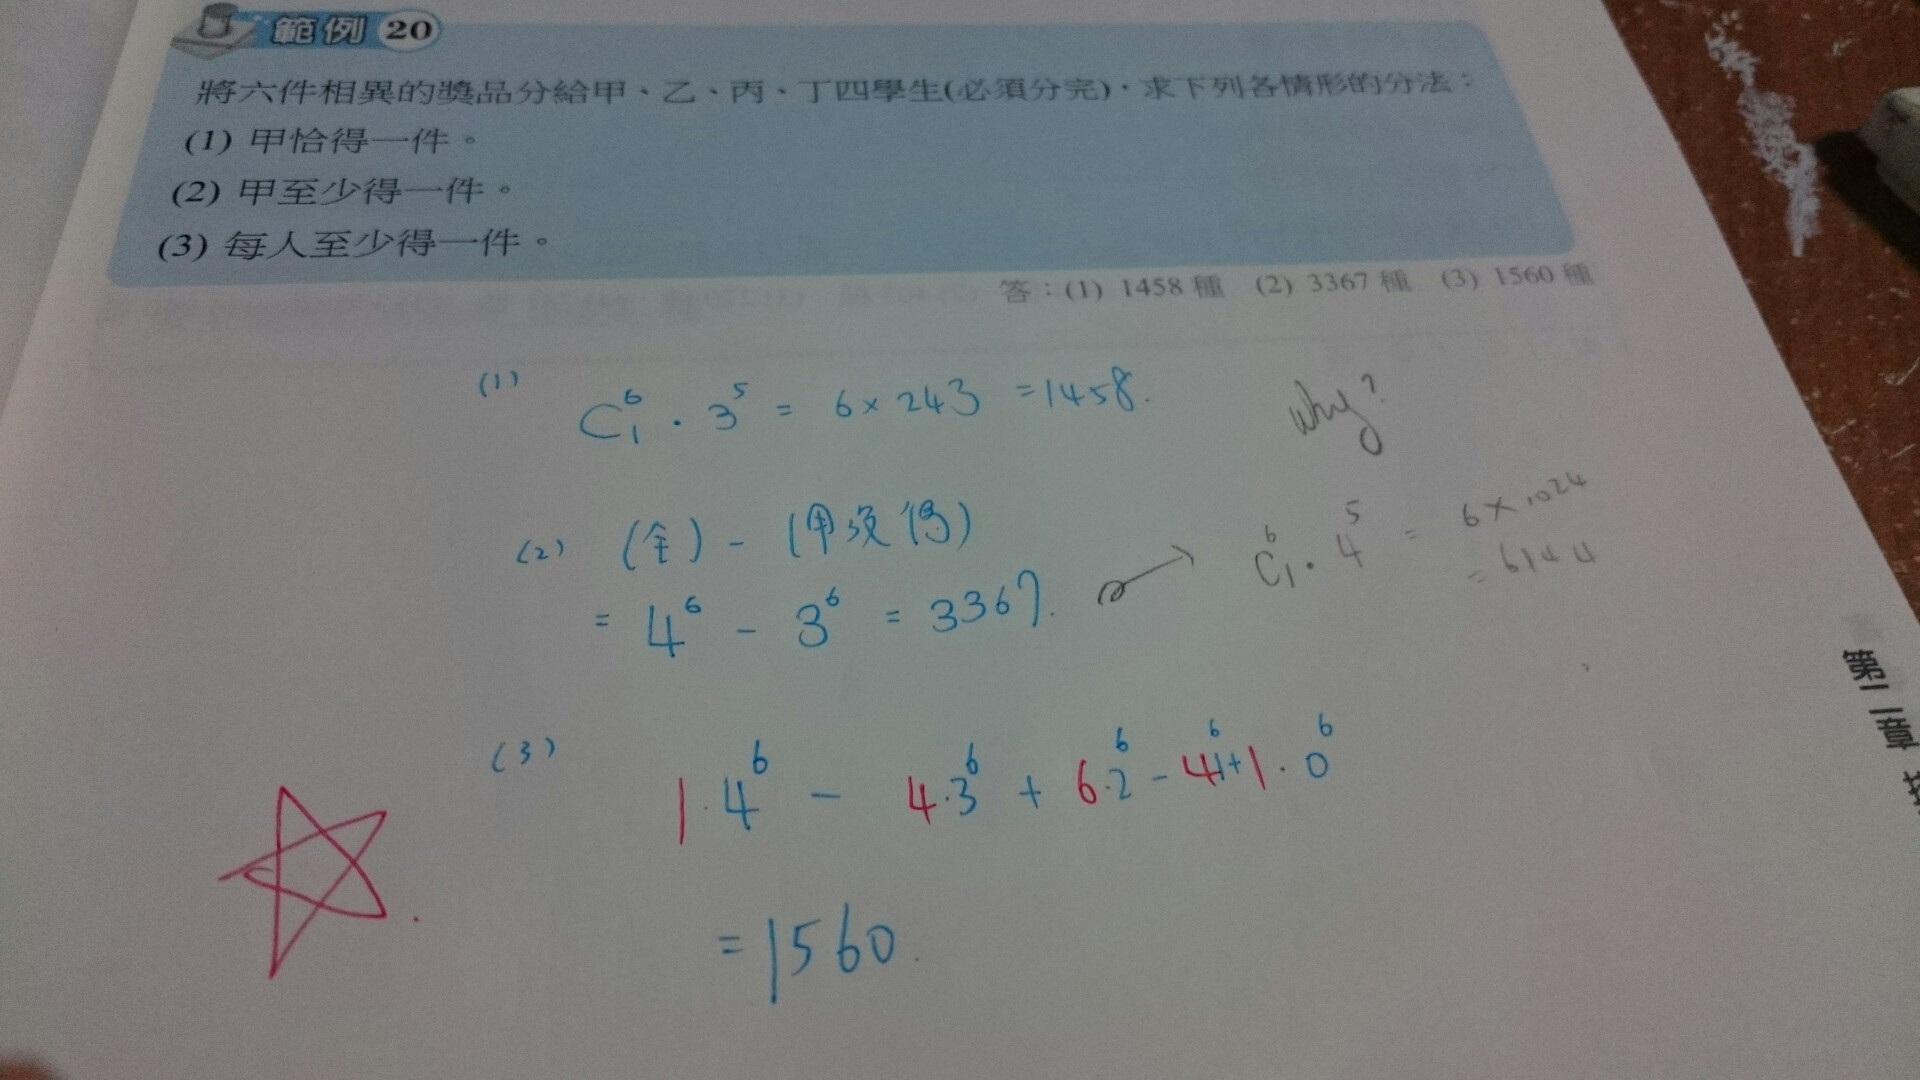 範例 20
將六件相異的獎品分給甲、乙、丙、丁四學生(必須分完)，求下列各情形的分法：
(1) 甲恰得一件。
(2) 甲至少得一件。
(3) 每人至少得一件。
答：(1) 1458 種 (2) 3367 種 (3) 1560 種
(1) C⁶₁ · 3⁵ = 6 × 243 = 1458.
why?
(2) (全) - (甲沒得)
= 4⁶ - 3⁶ = 3367. → C⁶₁ · 4⁵ = 6 × 1024
= 6144
(3) 1·4⁶ - 4·3⁶ + 6·2⁶ - 4·1⁶ + 1·0⁶
= 1560.
第二章